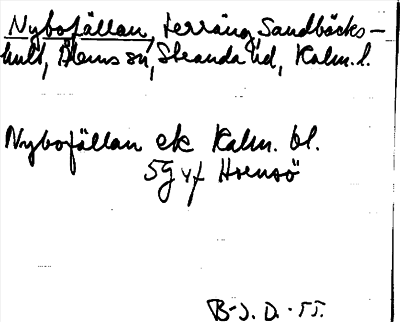 Nybofällan, terräng, Sandbäcks-
hult, Ålems sn, Stranda hd, Kalm. l.
Nybofällan ek Kalm. bl.
5g vf Hornsö
B-J. D. - 55.